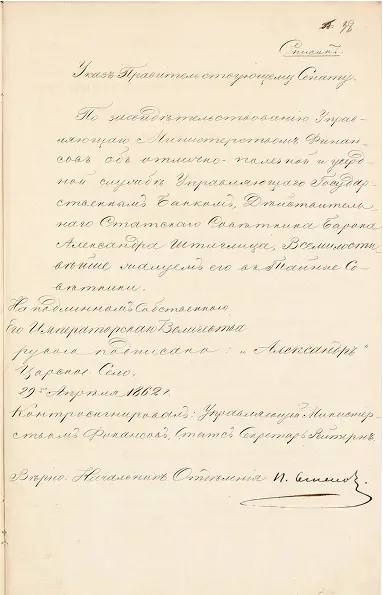 38
Списокъ.
Указъ Правительствующему Сенату.
По засвидѣтельствованію Управ-
ляющаго Министерствомъ Финан-
совъ объ отлично-полезной и усерд-
ной службѣ Управляющаго Государ-
ственнымъ Банкомъ, Дѣйствитель-
наго Статскаго Совѣтника Барона
Александра Штиглица, Всемилости-
вѣйше жалуемъ его въ Тайные Со-
вѣтники.
На подлинномъ Собственною
Его Императорскаго Величества
рукою подписано: „Александръ"
Царское Село.
29го Апрѣля 1862 г.
Контросигнировалъ: Управляющій Министер-
ствомъ Финансовъ, Статсъ Секретарь Рейтернъ.
Вѣрно: Начальникъ Отдѣленія